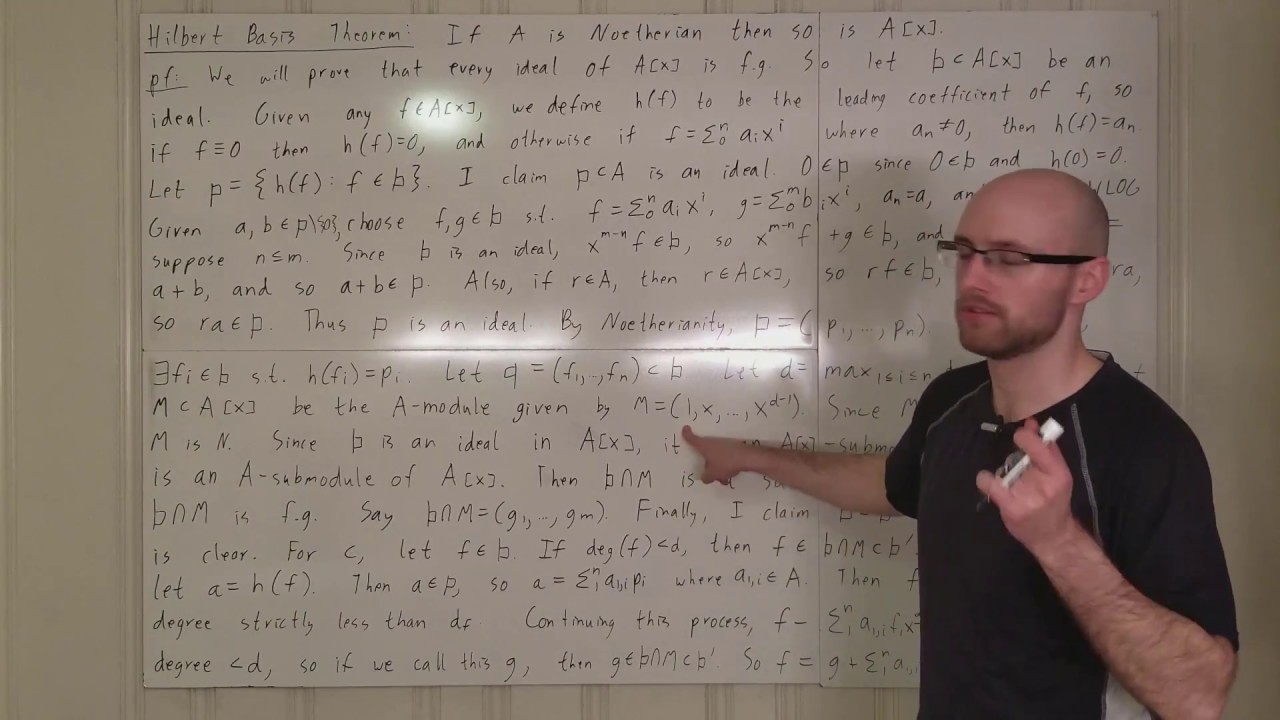 Hilbert Basis Theorem: If A is Noetherian then so is A[x].
pf: We will prove that every ideal of A[x] is f.g. So let 𝔟 ⊂ A[x] be an
ideal. Given any f ∈ A[x], we define h(f) to be the leading coefficient of f, so
if f ≡ 0 then h(f)=0, and otherwise if f = Σ₀ⁿ aᵢxⁱ where aₙ ≠ 0, then h(f)=aₙ
Let 𝔭 = {h(f) : f ∈ 𝔟}. I claim 𝔭 ⊂ A is an ideal. 0 ∈ 𝔭 since 0 ∈ 𝔟 and h(0) = 0.
Given a, b ∈ 𝔭\{0}, choose f, g ∈ 𝔟 s.t. f = Σ₀ⁿ aᵢxⁱ, g = Σ₀ᵐ bᵢxⁱ, aₙ = a, WLOG
suppose n ≤ m. Since 𝔟 is an ideal, xᵐ⁻ⁿf ∈ 𝔟, so xᵐ⁻ⁿf + g ∈ 𝔟, and =
a + b, and so a+b ∈ 𝔭. Also, if r ∈ A, then r ∈ A[x], so rf ∈ 𝔟, ra,
so ra ∈ 𝔭. Thus 𝔭 is an ideal. By Noetherianity, 𝔭 = (p₁, ..., pₙ).
∃fᵢ ∈ 𝔟 s.t. h(fᵢ) = pᵢ. Let 𝔮 = (f₁, .., fₙ) ⊂ 𝔟 Let d = max₁≤ᵢ≤ₙ
M ⊂ A[x] be the A-module given by M = (1, x, ..., xᵈ⁻¹). Since M
M is N. Since 𝔟 is an ideal in A[x], it A[x]-submod
is an A-submodule of A[x]. Then 𝔟∩M is
𝔟∩M is f.g. Say 𝔟∩M = (g₁, ..., gₘ). Finally, I claim
is clear. For ⊂, let f ∈ 𝔟. If deg(f) < d, then f ∈ 𝔟∩M ⊂ 𝔟'.
let a = h(f). Then a ∈ 𝔭, so a = Σ₁ⁿ a₁,ᵢpᵢ where a₁,ᵢ ∈ A. Then f
degree strictly less than d_f. Continuing this process, f - Σ₁ⁿ a₁,ᵢfᵢx
degree < d, so if we call this g, then g ∈ 𝔟∩M ⊂ 𝔟'. So f = g + Σ₁ⁿ a₁,